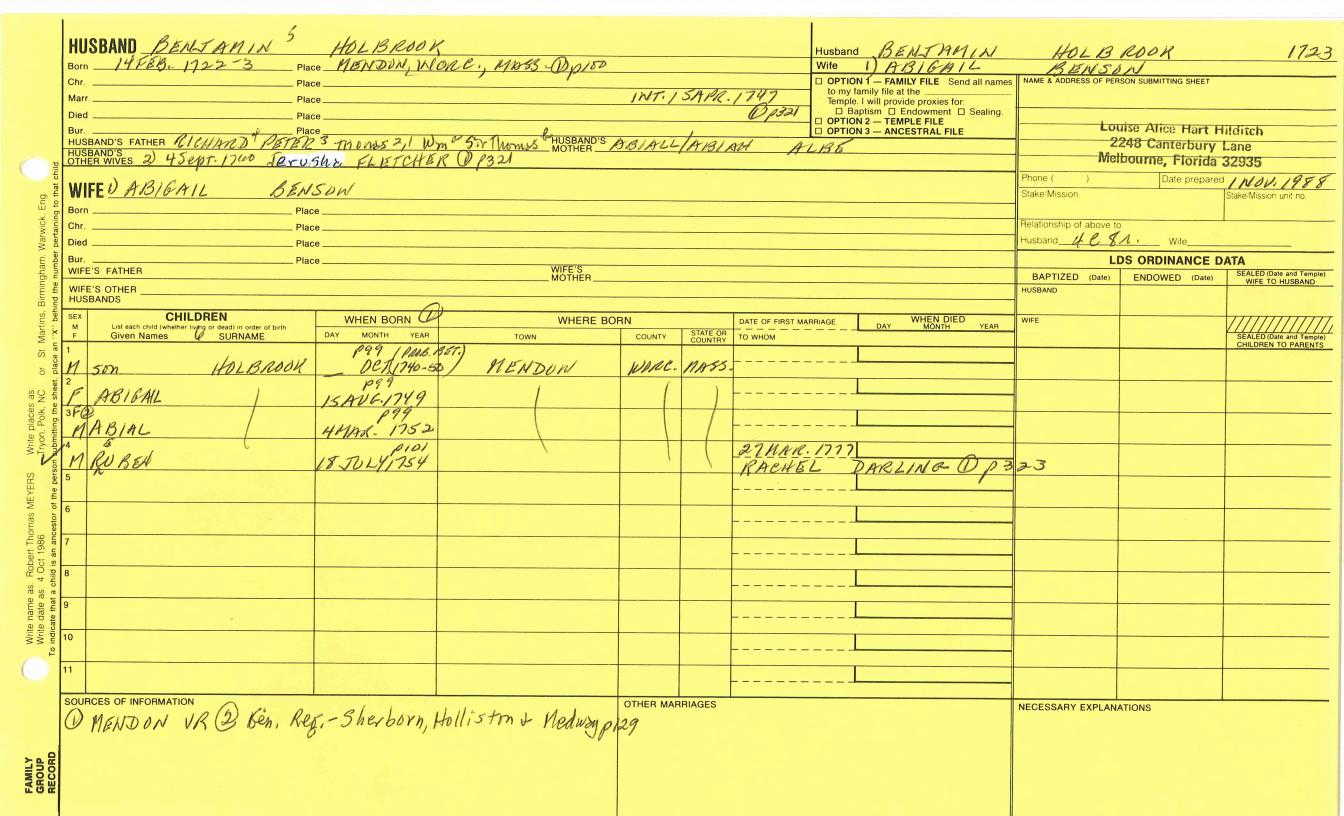 HUSBAND BENJAMIN 5 HOLBROOK
Born 14 FEB. 1722-3 Place MENDON, WORC., MASS. ① p100
Chr. Place
Marr. Place INT. 15 APR. 1747
Died Place ① p321
Bur. Place
HUSBAND'S FATHER RICHARD 4 PETER 3 Thomas 2,1 Wm Sir Thomas HUSBAND'S MOTHER ABIALL/ABIAH ALBE
HUSBAND'S OTHER WIVES 2) 4 Sept. 1760 Jerusha FLETCHER ① p321
WIFE 1) ABIGAIL BENSON
Born Place
Chr. Place
Died Place
Bur. Place
WIFE'S FATHER WIFE'S MOTHER
WIFE'S OTHER HUSBANDS
Husband BENJAMIN HOLBROOK 1723
Wife 1) ABIGAIL BENSON
☐ OPTION 1 — FAMILY FILE Send all names
to my family file at the
Temple. I will provide proxies for:
☐ Baptism ☐ Endowment ☐ Sealing.
☐ OPTION 2 — TEMPLE FILE
☐ OPTION 3 — ANCESTRAL FILE
NAME & ADDRESS OF PERSON SUBMITTING SHEET
Louise Alice Hart Hilditch
2248 Canterbury Lane
Melbourne, Florida 32935
Phone ( ) Date prepared 1 NOV. 1988
Stake/Mission Stake/Mission unit no.
Relationship of above to:
Husband Wife
LDS ORDINANCE DATA
BAPTIZED (Date) ENDOWED (Date) SEALED (Date and Temple) WIFE TO HUSBAND
HUSBAND
WIFE
SEALED (Date and Temple) CHILDREN TO PARENTS
SEX M F
CHILDREN
List each child (whether living or dead) in order of birth
Given Names 6 SURNAME
WHEN BORN ①
DAY MONTH YEAR
WHERE BORN
TOWN COUNTY STATE OR COUNTRY
DATE OF FIRST MARRIAGE
TO WHOM
WHEN DIED
DAY MONTH YEAR
1 p99
M son HOLBROOK OCT MENDON WORC. MASS.
2 p99
F ABIGAIL 15 AUG. 1749
3 F② p99
M ABIAL 4 MAR. 1752
4 p101 27 MAR. 1777
M RUBEN 18 JULY 1754 RACHEL DARLING ① p323
5
6
7
8
9
10
11
SOURCES OF INFORMATION
① MENDON VR ② Gen. Reg.-Sherborn, Holliston & Medway p129
OTHER MARRIAGES
NECESSARY EXPLANATIONS
Write name as: Robert Thomas MEYERS Write places as: Tryon, Polk, NC or St. Martins, Birmingham, Warwick, Eng.
Write date as: 4 Oct 1986
To indicate that a child is an ancestor of the person submitting the sheet, place an "X" behind the number pertaining to that child
FAMILY GROUP RECORD